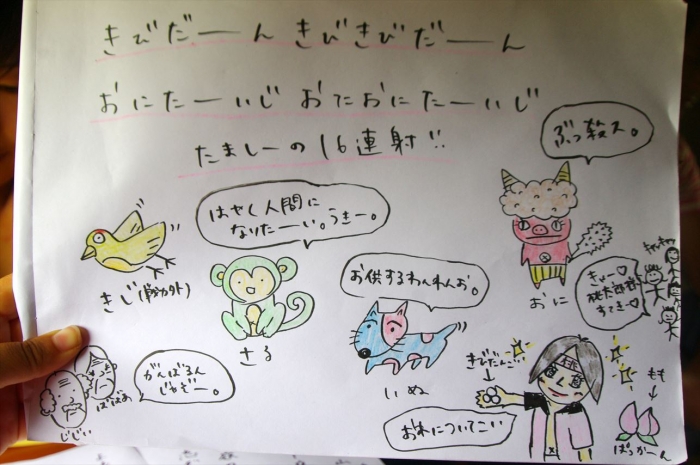 きびだーん きびきびだーん
おにたーいじ おにおにたーいじ
たましーの16連射!!
ぶっ殺ス。
はやく人間に
なりたーい。うきー。
きじ
さる
お供するわんわんお。
いぬ
おに
キャッキャッ
きゃー♡
桃太郎君
すてき♡
がんばるん
じゃぞー。
ばばあ
じじい
きびだんご
お米についてこい
もも
ぱっかーん